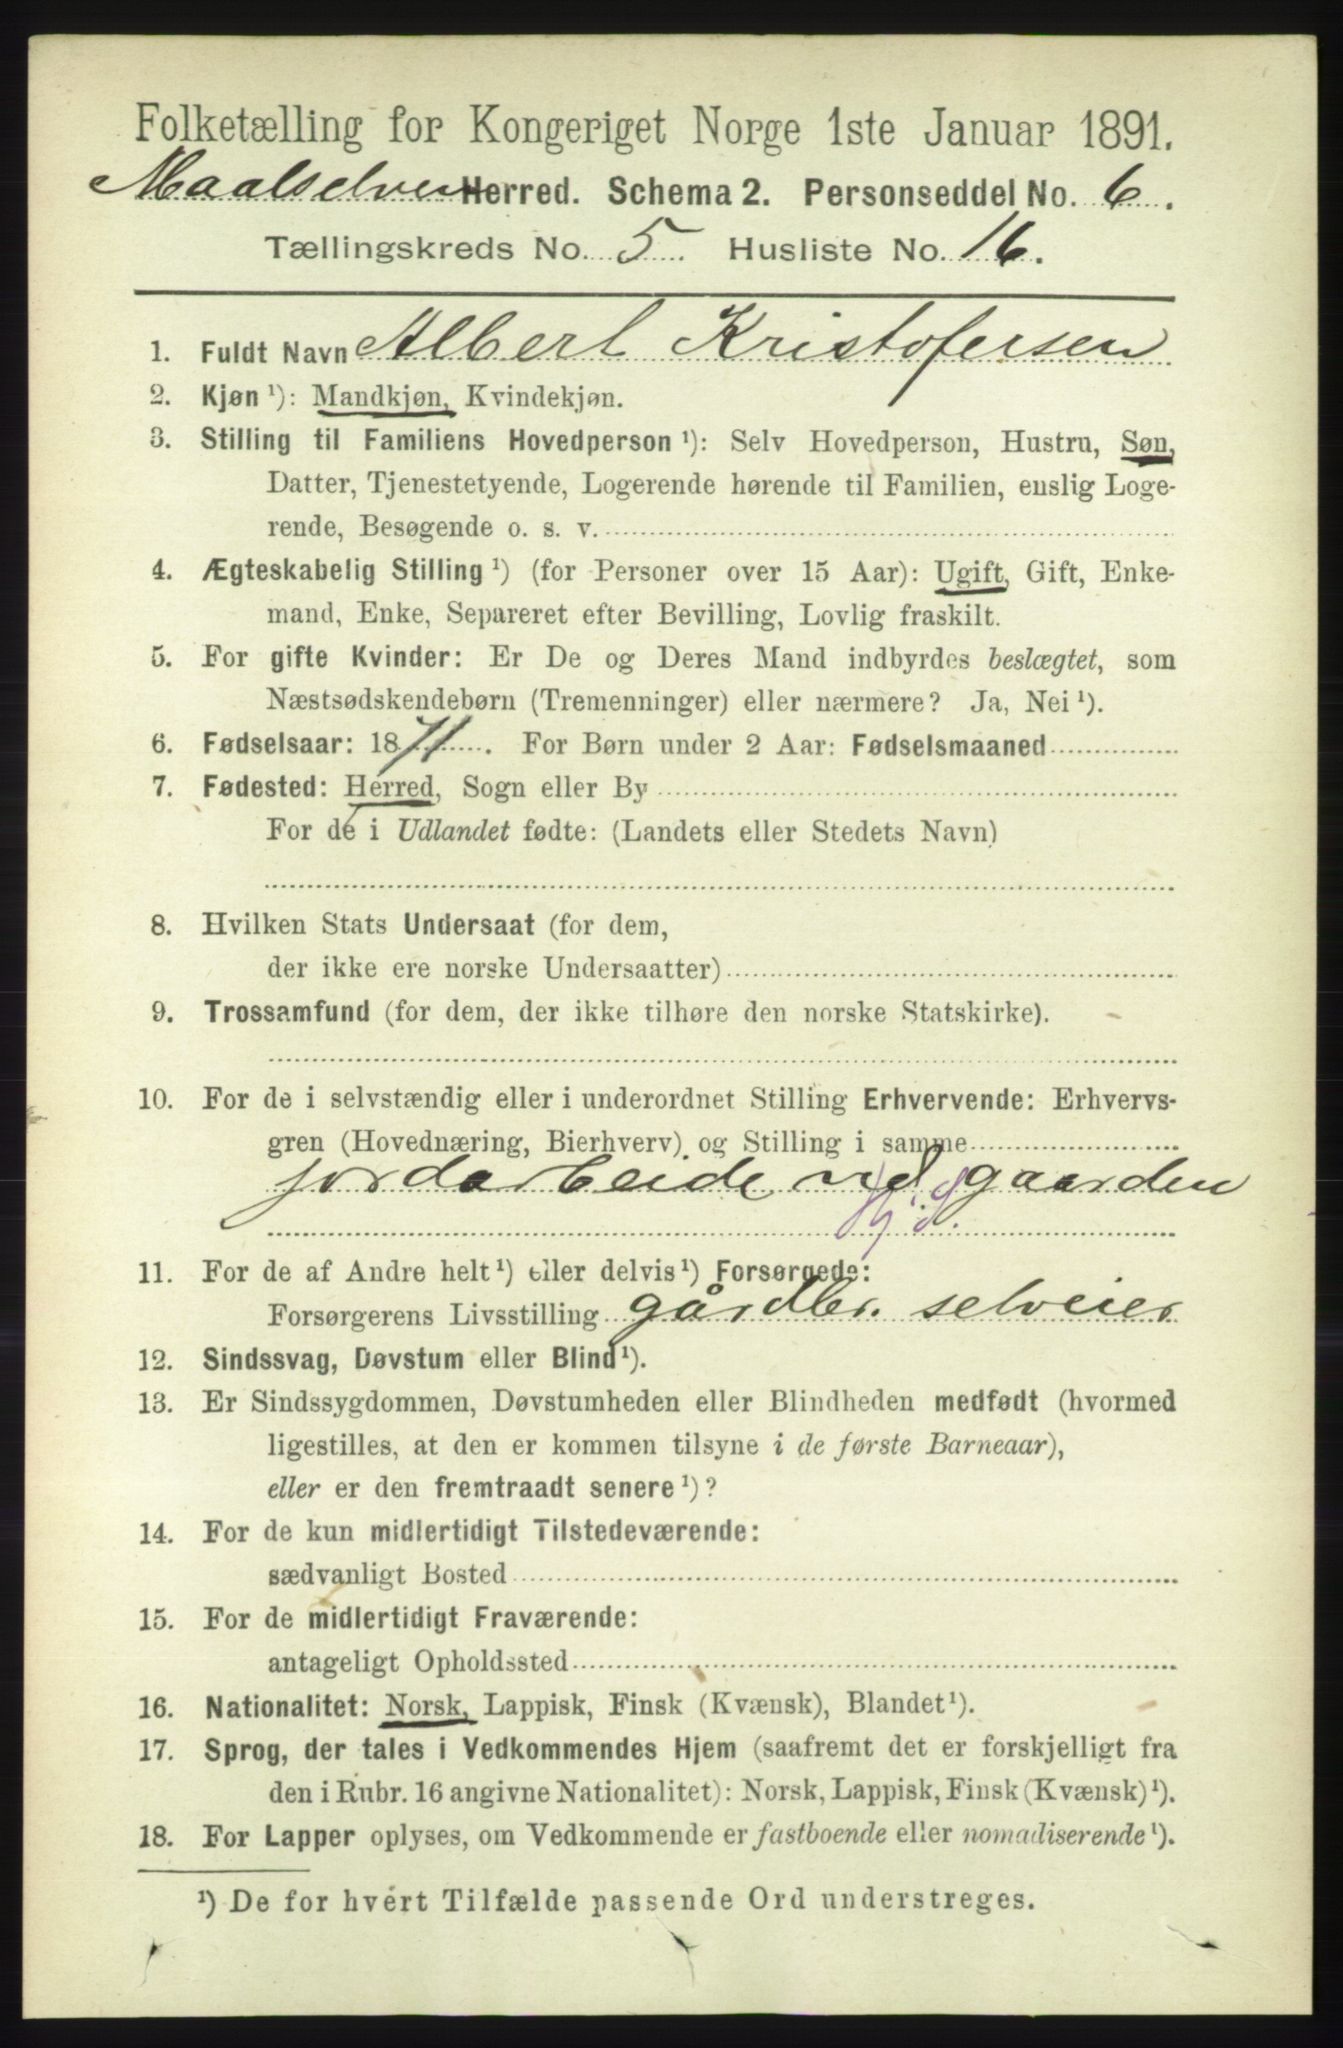 Folketælling for Kongeriget Norge 1ste Januar 1891.
Maalselven Herred. Schema 2. Personseddel No. 6.
Tællingskreds No. 5. Husliste No. 16.
1. Fuldt Navn Albert Kristofersen
2. Kjøn ¹): Mandkjøn, Kvindekjøn.
3. Stilling til Familiens Hovedperson ¹): Selv Hovedperson, Hustru, Søn,
Datter, Tjenestetyende, Logerende hørende til Familien, enslig Loge-
rende, Besøgende o. s. v.
4. Ægteskabelig Stilling ¹) (for Personer over 15 Aar): Ugift, Gift, Enke-
mand, Enke, Separeret efter Bevilling, Lovlig fraskilt.
5. For gifte Kvinder: Er De og Deres Mand indbyrdes beslægtet, som
Næstsødskendebørn (Tremenninger) eller nærmere? Ja, Nei ¹).
6. Fødselsaar: 1871. For Børn under 2 Aar: Fødselsmaaned
7. Fødested: Herred, Sogn eller By
For de i Udlandet fødte: (Landets eller Stedets Navn)
8. Hvilken Stats Undersaat (for dem,
der ikke ere norske Undersaatter)
9. Trossamfund (for dem, der ikke tilhøre den norske Statskirke).
10. For de i selvstændig eller i underordnet Stilling Erhvervende: Erhvervs-
gren (Hovednæring, Bierhverv) og Stilling i samme
jordarbeide ved gaarden
11. For de af Andre helt ¹) eller delvis ¹) Forsørgede:
Forsørgerens Livsstilling gårdbr. selveier
12. Sindssvag, Døvstum eller Blind ¹).
13. Er Sindssygdommen, Døvstumheden eller Blindheden medfødt (hvormed
ligestilles, at den er kommen tilsyne i de første Barneaar),
eller er den fremtraadt senere ¹)?
14. For de kun midlertidigt Tilstedeværende:
sædvanligt Bosted
15. For de midlertidigt Fraværende:
antageligt Opholdssted
16. Nationalitet: Norsk, Lappisk, Finsk (Kvænsk), Blandet ¹).
17. Sprog, der tales i Vedkommendes Hjem (saafremt det er forskjelligt fra
den i Rubr. 16 angivne Nationalitet): Norsk, Lappisk, Finsk (Kvænsk) ¹).
18. For Lapper oplyses, om Vedkommende er fastboende eller nomadiserende ¹).
¹) De for hvert Tilfælde passende Ord understreges.